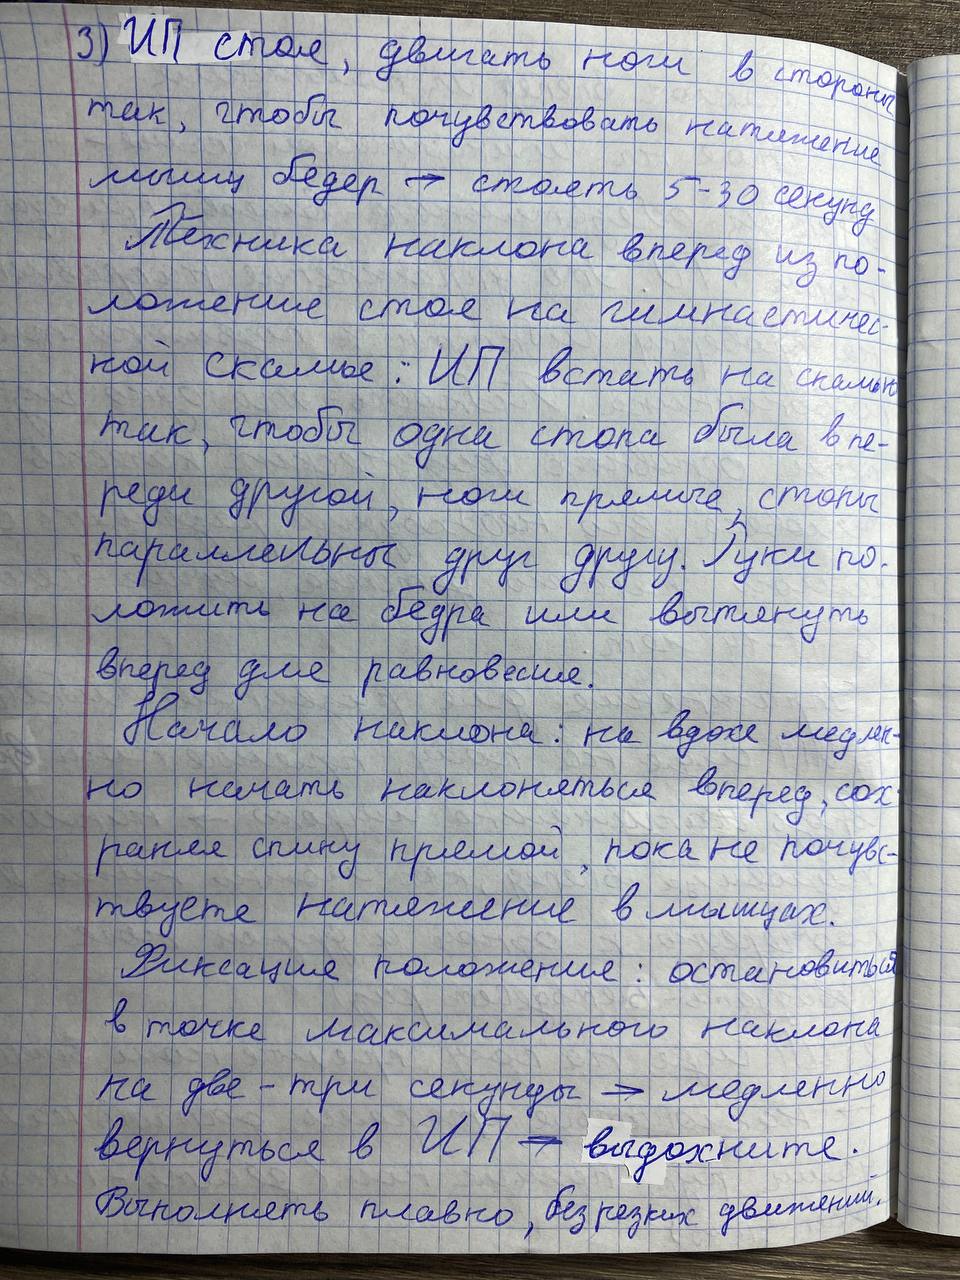 3) ИП стоя, двигать ноги в стороны
так, чтобы почувствовать натяжение
мышц бедер → стоять 5-30 секунд
Техника наклона вперед из по-
ложение стоя на гимнастичес-
кой скамье: ИП встать на скамью
так, чтобы одна стопа была впе-
реди другой, ноги прямые, стопы
параллельны друг другу. Руки по-
ложить на бедра или вытянуть
вперед для равновесия.
Начало наклона: на вдохе медлен-
но начать наклоняться вперед, сох-
раняя спину прямой, пока не почувс-
твуете натяжение в мышцах.
Фиксация положение: остановиться
в точке максимального наклона
на две-три секунды → медленно
вернуться в ИП → выдохните.
Выполнять плавно, без резких движений.